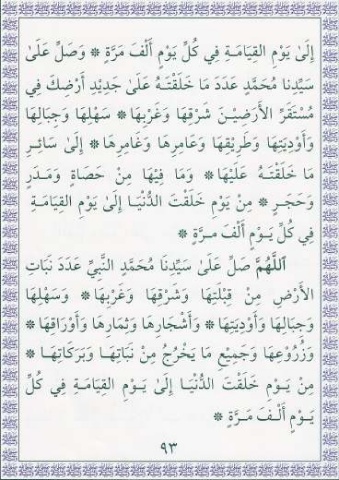 إِلَىٰ يَوْمِ القِيَامَةِ فِي كُلِّ يَوْمٍ أَلْفَ مَرَّةٍ * وَصَلِّ عَلَىٰ
سَيِّدِنَا مُحَمَّدٍ عَدَدَ مَا خَلَقْتَهُ عَلَىٰ جَدِيْدِ أَرْضِكَ فِي
مُسْتَقَرِّ الأَرَضِيْنَ شَرْقِهَا وَغَرْبِهَا * سَهْلِهَا وَجِبَالِهَا
وَأَوْدِيَتِهَا وَطَرِيْقِهَا وَعَامِرِهَا وَغَامِرِهَا * إِلَىٰ سَائِرِ
مَا خَلَقْتَهُ عَلَيْهَا * وَمَا فِيْهَا مِنْ حَصَاةٍ وَمَدَرٍ
وَحَجَرٍ * مِنْ يَوْمِ خَلَقْتَ الدُّنْيَا إِلَىٰ يَوْمِ القِيَامَةِ
فِي كُلِّ يَوْمٍ أَلْفَ مَرَّةٍ *
اَللَّهُمَّ صَلِّ عَلَىٰ سَيِّدِنَا مُحَمَّدٍ النَّبِيِّ عَدَدَ نَبَاتِ
الأَرْضِ مِنْ قِبْلَتِهَا وَشَرْقِهَا وَغَرْبِهَا * وَسَهْلِهَا
وَجِبَالِهَا وَأَوْدِيَتِهَا * وَأَشْجَارِهَا وَثِمَارِهَا وَأَوْرَاقِهَا *
وَزُرُوْعِهَا وَجَمِيْعِ مَا يَخْرُجُ مِنْ نَبَاتِهَا وَبَرَكَاتِهَا *
مِنْ يَوْمِ خَلَقْتَ الدُّنْيَا إِلَىٰ يَوْمِ القِيَامَةِ فِي كُلِّ
يَوْمٍ أَلْفَ مَرَّةٍ *
٩٣